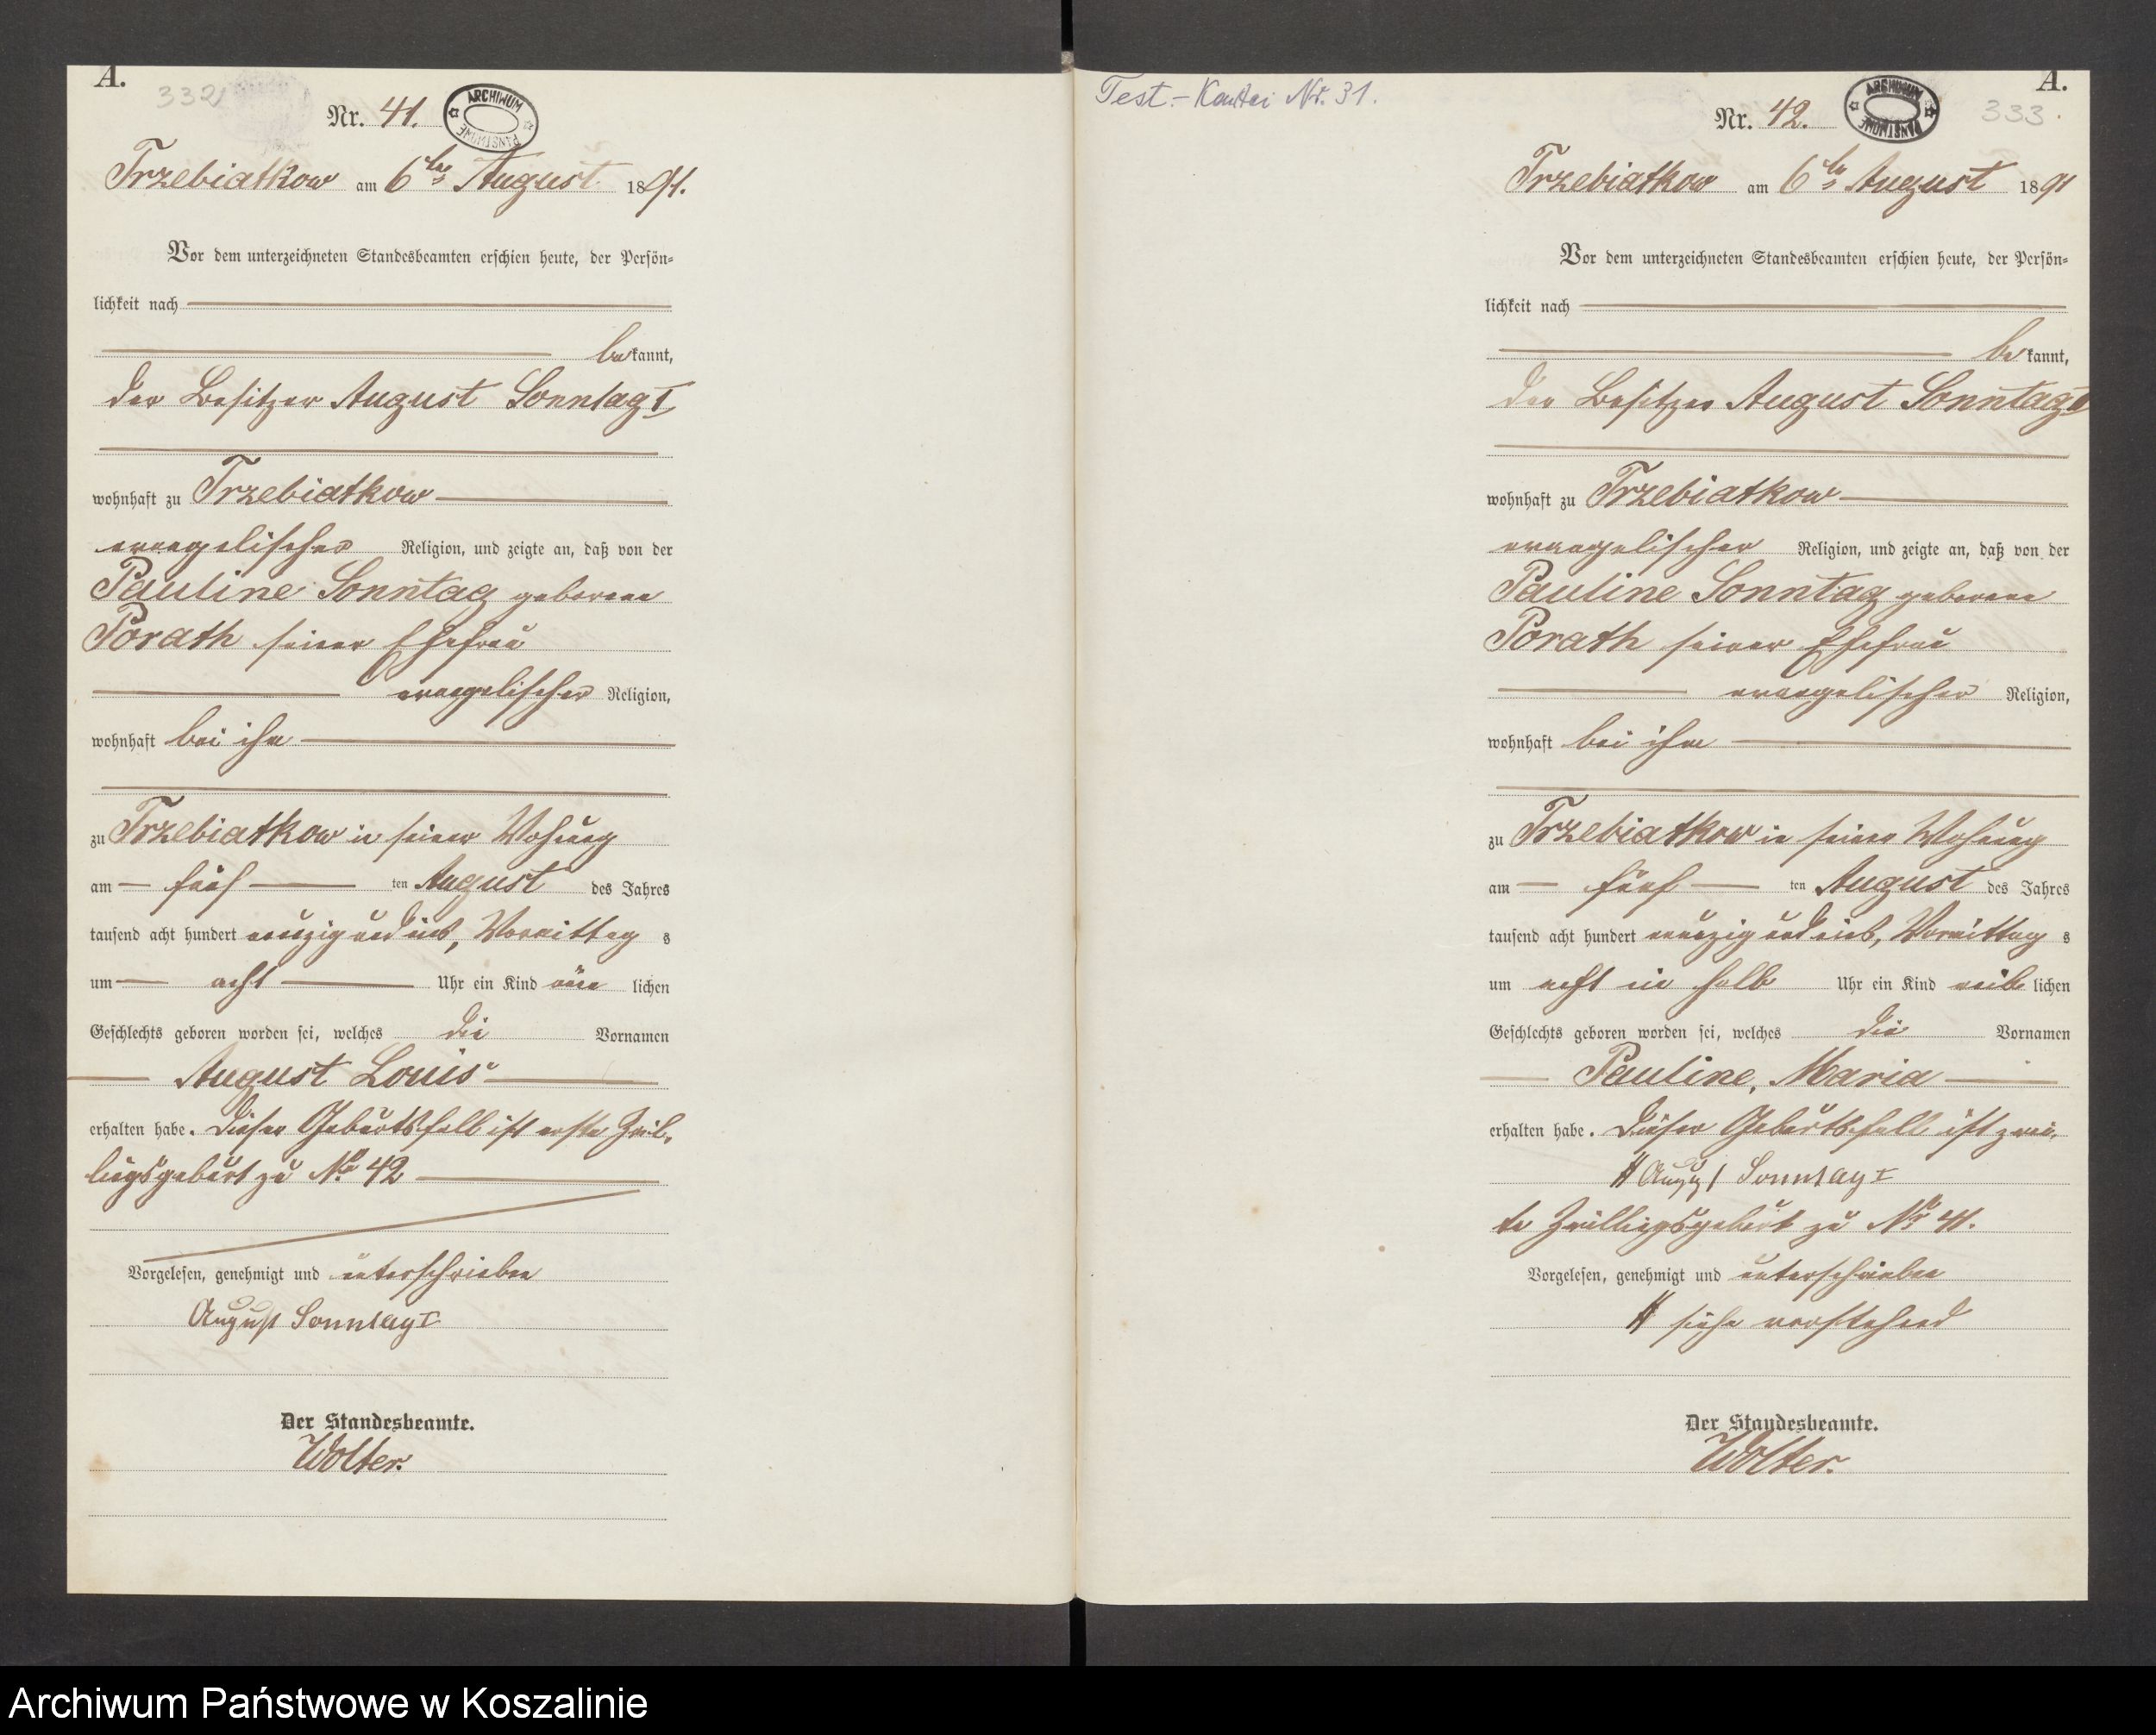 A.
332
Nr. 41.
ARCHIWUM PAŃSTWOWE
Trzebiatkow am 6ten August 1891.
Vor dem unterzeichneten Standesbeamten erschien heute, der Persön-
lichkeit nach
bekannt,
der Besitzer August Sonntag I
wohnhaft zu Trzebiatkow
evangelischer Religion, und zeigte an, daß von der
Pauline Sonntag geborene
Porath seiner Ehefrau
evangelischer Religion,
wohnhaft bei ihm
zu Trzebiatkow in seiner Wohnung
am fünf ten August des Jahres
tausend acht hundert neunzig und eins, Vormittag s
um acht Uhr ein Kind männ lichen
Geschlechts geboren worden sei, welches die Vornamen
August Louis
erhalten habe. Dieser Geburtsfall ist erste Zwil-
lingsgeburt zu No 42
Vorgelesen, genehmigt und unterschrieben
August Sonntag I
Der Standesbeamte.
Wolter.
Test.-Kartei Nr. 31.
A.
333.
Nr. 42.
ARCHIWUM PAŃSTWOWE
Trzebiatkow am 6ten August 1891
Vor dem unterzeichneten Standesbeamten erschien heute, der Persön-
lichkeit nach
bekannt,
der Besitzer August Sonntag I
wohnhaft zu Trzebiatkow
evangelischer Religion, und zeigte an, daß von der
Pauline Sonntag geborene
Porath seiner Ehefrau
evangelischer Religion,
wohnhaft bei ihm
zu Trzebiatkow in seiner Wohnung
am fünf ten August des Jahres
tausend acht hundert neunzig und eins, Vormittag s
um acht ein halb Uhr ein Kind weib lichen
Geschlechts geboren worden sei, welches die Vornamen
Pauline, Maria
erhalten habe. Dieser Geburtsfall ist zwei-
# August Sonntag I
te Zwillingsgeburt zu No 41.
Vorgelesen, genehmigt und unterschrieben
# siehe vorstehend
Der Standesbeamte.
Wolter.
Archiwum Państwowe w Koszalinie